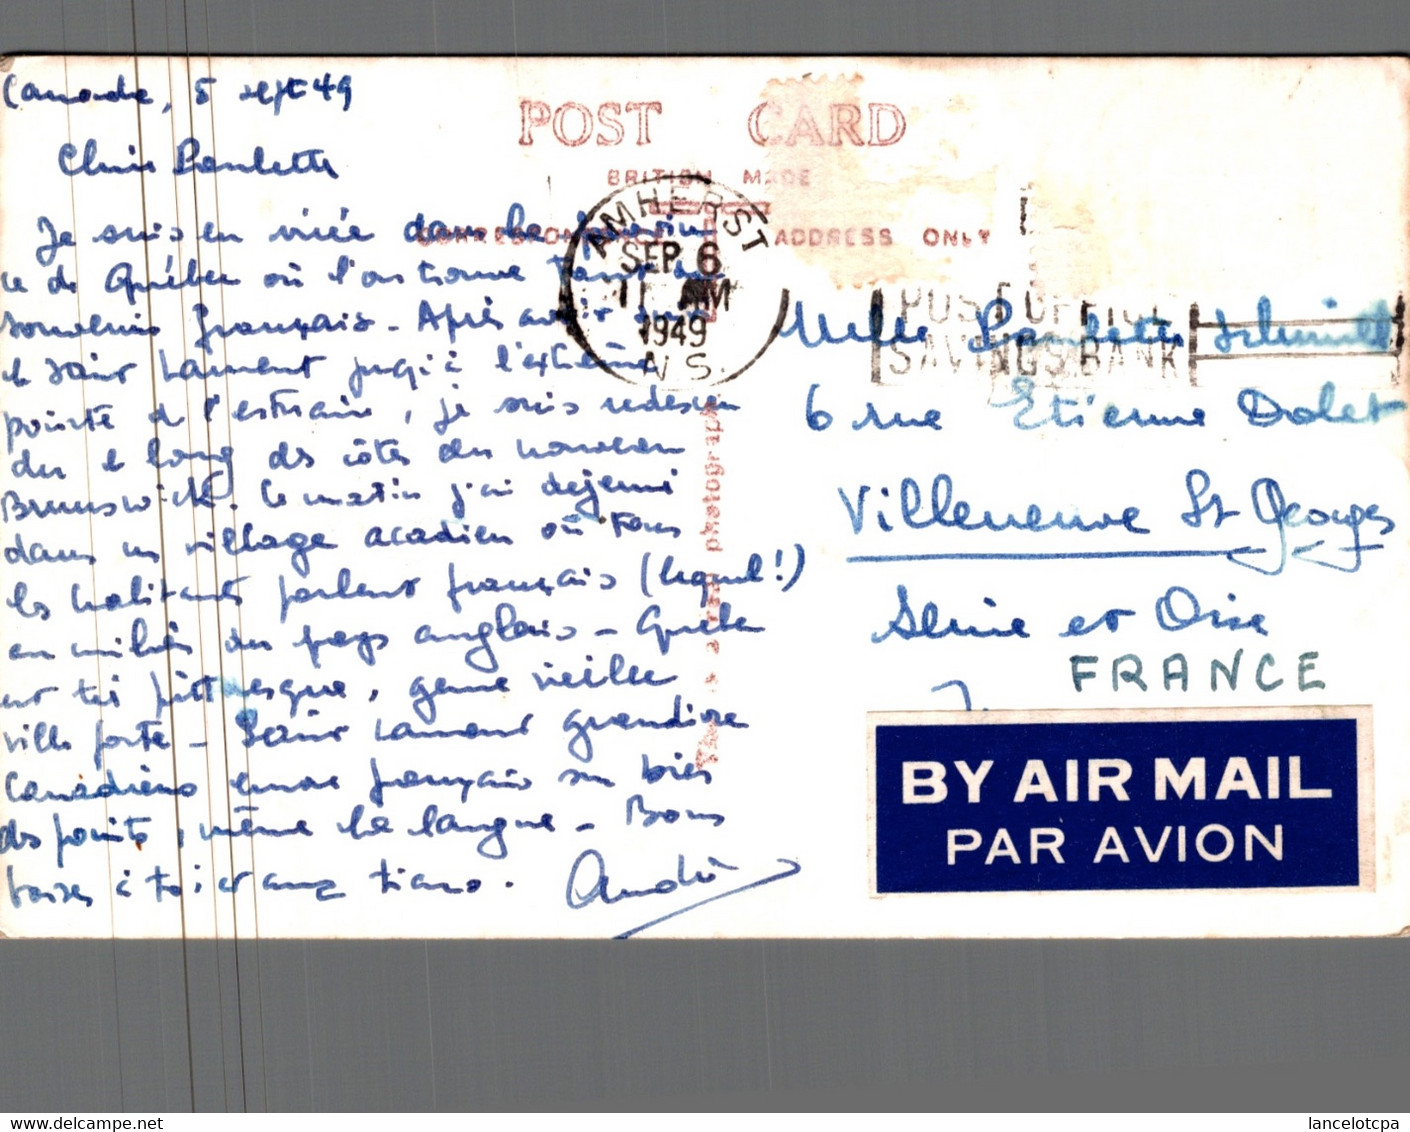 Canada, 5 sept 49
Chère Paulette
Je suis en virée dans la provin
ce de Québec où l'on trouve tant de
souvenirs français - Après avoir
le Saint Laurent jusqu'à l'extrême
pointe de l'estuaire, je suis redescen
du le long des côtes du nouveau
Brunswick. Ce matin j'ai déjeuné
dans un village acadien où tous
les habitants parlent français (lequel!)
au milieu du pays anglais - Québec
est très pittoresque, genre vieille
ville forte - Saint Laurent grandiose
Canadiens encore français sur bien
des points, même la langue - Bons
baisers à toi et aux tiens. André
POST CARD
BRITISH MADE
CORRESPONDENCE
ADDRESS ONLY
AMHERST
SEP 6
11 AM
1949
N.S.
POST OFFICE
SAVINGS BANK
photograph
Melle Paulette
6 rue Etienne Dolet
Villeneuve St Georges
Seine et Oise
FRANCE
BY AIR MAIL
PAR AVION
www.delcampe.net
lancelotcpa